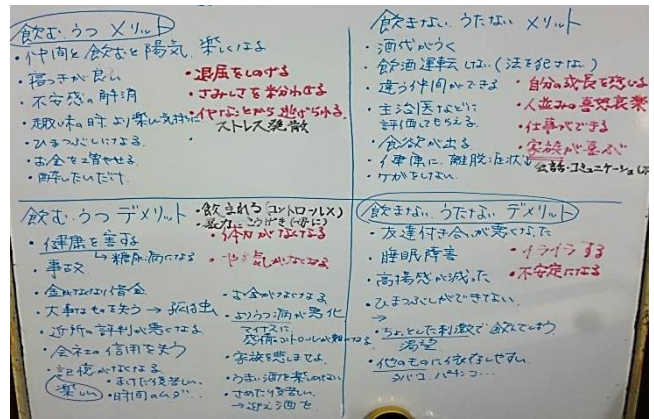 飲む、うつ メリット
・仲間と飲むと陽気、楽しくなる
・寝つきが良い
・不安感の解消
・趣味の時、より楽しい気持ちに
・ひまつぶしになる。
・お金を増やせる。
・酔いたいだけ。
・退屈をしのげる
・さみしさを半分わせる
・イヤなことから逃げられる
ストレス発散
飲まない、うたない メリット
・酒代がうく
・飲酒運転しない(法を犯さない)
・違う仲間ができる
・主治医などに
評価してもらえる。
・食欲が出る
・ケガをしない。
・自分の成長を感じる
・人並みの喜怒哀楽
・仕事ができる
・家族が喜ぶ
会話・コミュニケーション
飲む、うつ デメリット
・健康を害する
↳糖尿病になる
・事故
・金がなくなり借金
・大事なものを失う→
・近所の評判が悪くなる
・会社の信用を失う
・記憶がなくなる
楽しい
・あけた後苦しい、
・時間のムダ…
・飲まれる(コントロール×)
・体力がなくなる
・やる気がなくなる
・お金がなくなる
・よりうつ病が悪化
マイナスに
感情コントロールが難しくなる
・家族を悲しませる、
・うまい酒を楽しめない
・さめた後苦しい、
→迎え酒を
飲まない、うたない デメリット
・友達付き合いが悪くなった
・睡眠障害
・高揚感が減った
・ひまつぶしができてない、
→
・ちょっとした刺激で飲んでしまう
渇望
・他のものに依存しやすい
タバコ、パチンコ…
・イライラする
・不安定になる